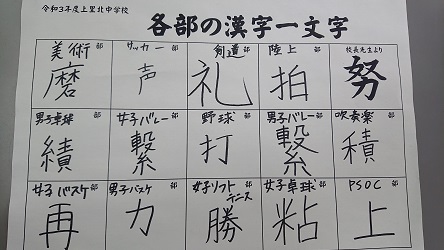 令和3年度上里北中学校
各部の漢字一文字
美術部 サッカー部 剣道部 陸上部 校長先生より
磨 声 礼 拍 努
男子卓球部 女子バレー部 野球部 男子バレー部 吹奏楽部
績 繋 打 繋 積
女子バスケ部 男子バスケ部 女子ソフトテニス部 女子卓球部 PSOC部
再 力 勝 粘 上